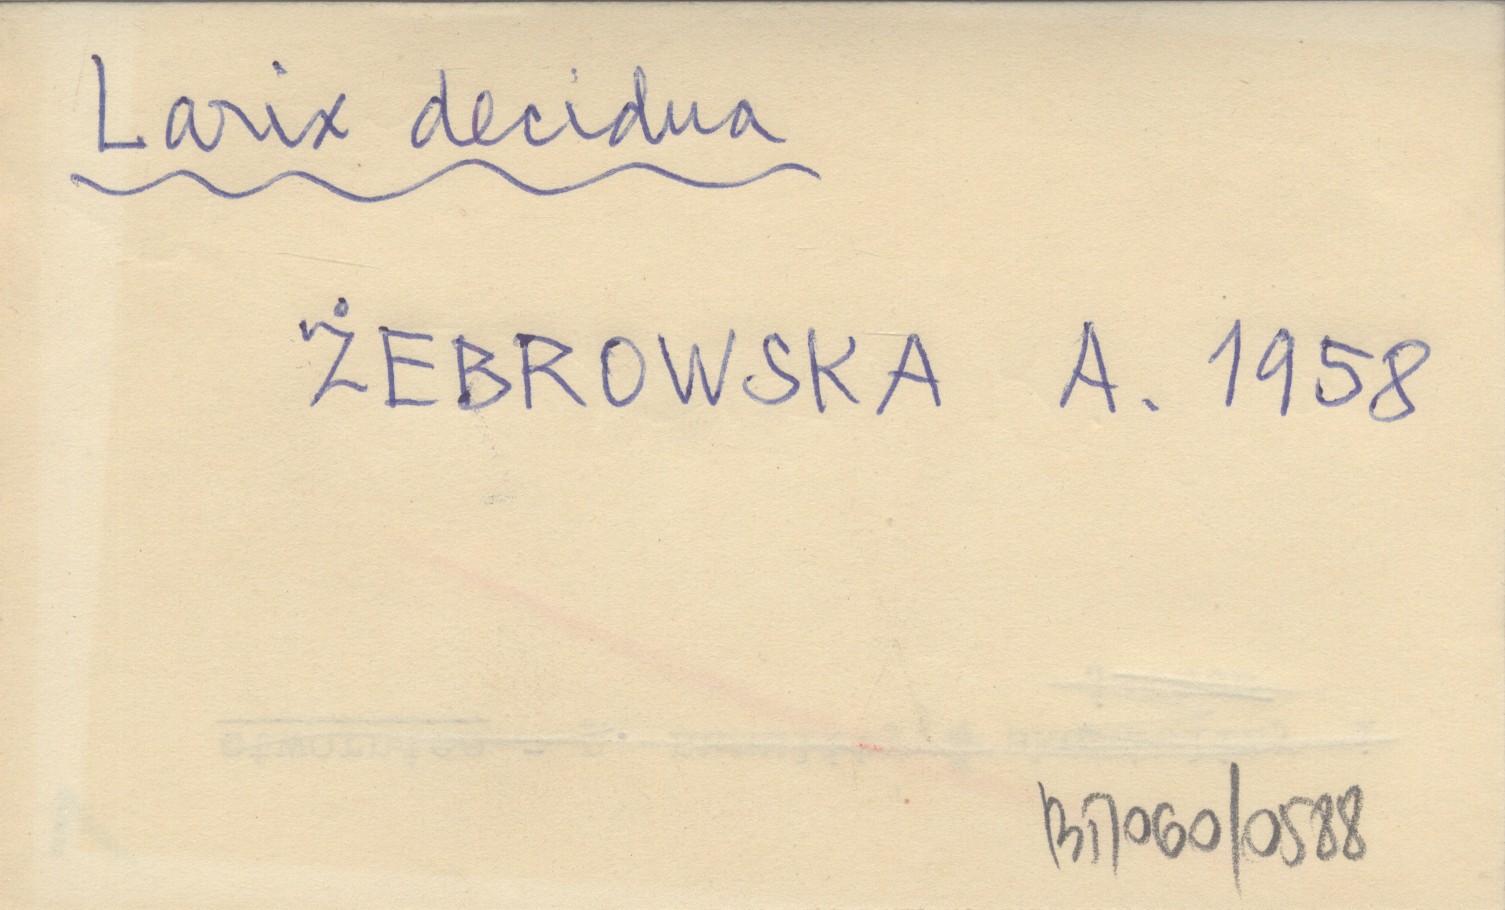 Larix decidua
ŻEBROWSKA A. 1958
BI/060/0588